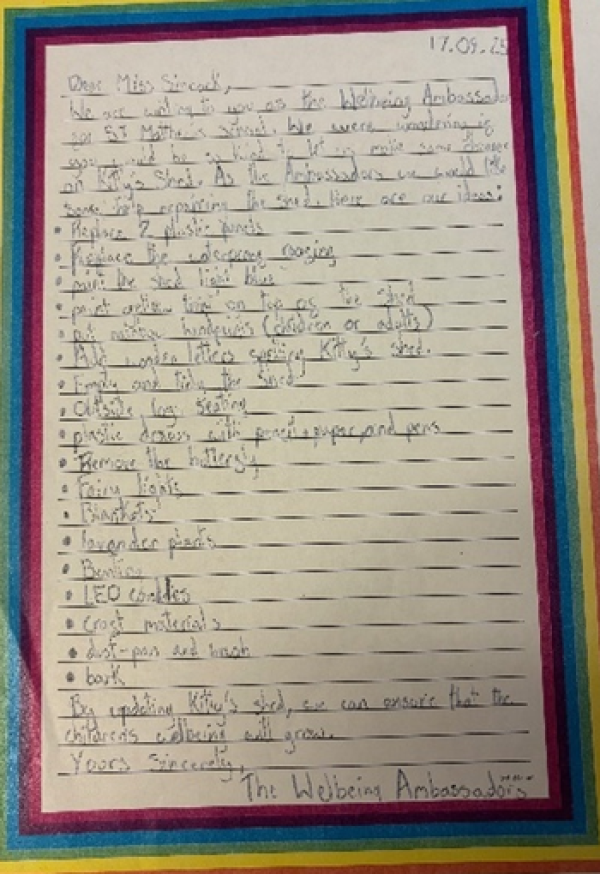 17.09.25
Dear Miss Sincock,
We are writing to you as the Wellbeing Ambassado
for St Matthew's school. We were wondering if
you would be so kind to let us make some changes
on Kitty's Shed. As the Ambassadors we would like
some help repairing the shed. Here are our ideas:
• Replace 2 plastic panels
• Replace the waterproof roofing
• paint the shed light blue
• paint trim on top of the shed
• put rainbow handprints (children or adults)
• Add wooden letters spelling Kitty's shed.
• Empty and tidy the shed
• Outside log seating
• plastic draws with pencil, paper, and pens
• Remove the butterfly
• Fairy lights
• Blankets
• lavender plants
• Bunting
• LED candles
• craft materials
• dust-pan and brush
• bark
By updating Kitty's shed, we can ensure that the
childrens wellbeing will grow.
Yours Sincerely,
The Welbeing Ambassadors